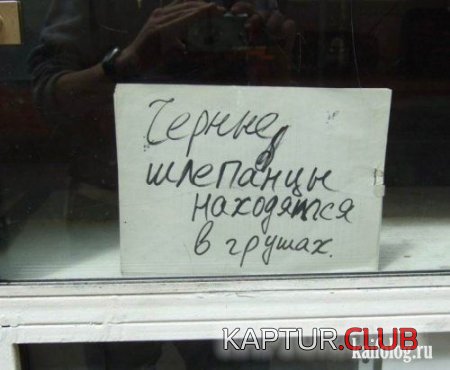 Черные
шлепанцы
находятся
в грушах.
KAPTUR.CLUB
kaifolog.ru